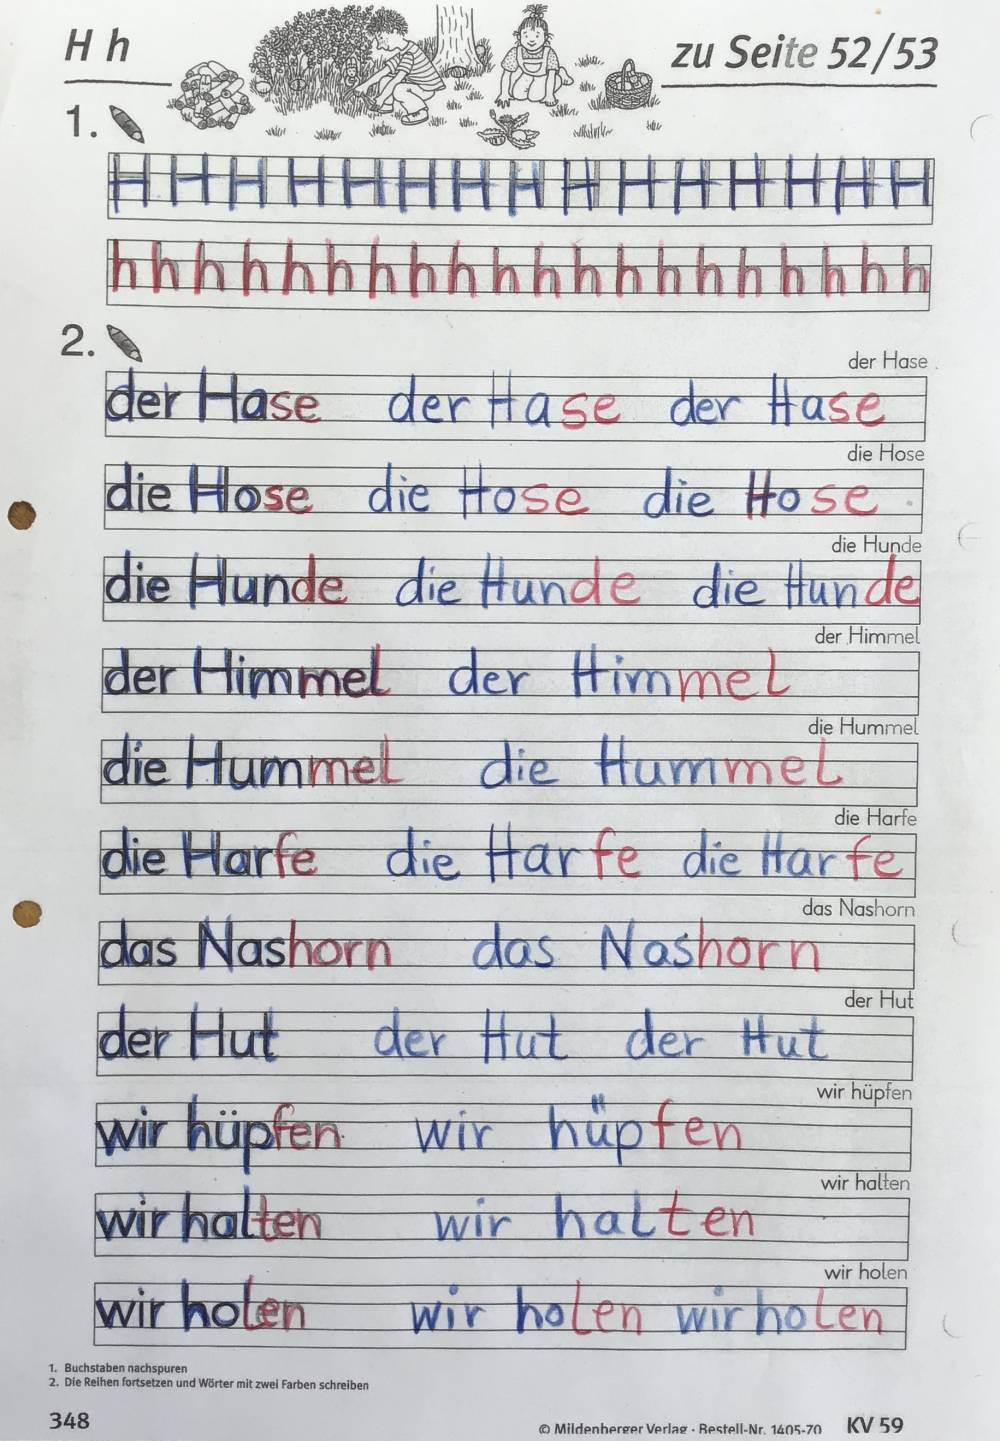 H h
zu Seite 52/53
1.
H H H H H H H H H H H H H H H
h h h h h h h h h h h h h h h h h h h h
2.
der Hase
der Hase der Hase der Hase
die Hose
die Hose die Hose die Hose
die Hunde
die Hunde die Hunde die Hunde
der Himmel
der Himmel der Himmel
die Hummel
die Hummel die Hummel
die Harfe
die Harfe die Harfe die Harfe
das Nashorn
das Nashorn das Nashorn
der Hut
der Hut der Hut der Hut
wir hüpfen
wir hüpfen wir hüpfen
wir halten
wir halten wir halten
wir holen
wir holen wir holen wir holen
1. Buchstaben nachspuren
2. Die Reihen fortsetzen und Wörter mit zwei Farben schreiben
348
© Mildenberger Verlag · Bestell-Nr. 1405-70 KV 59